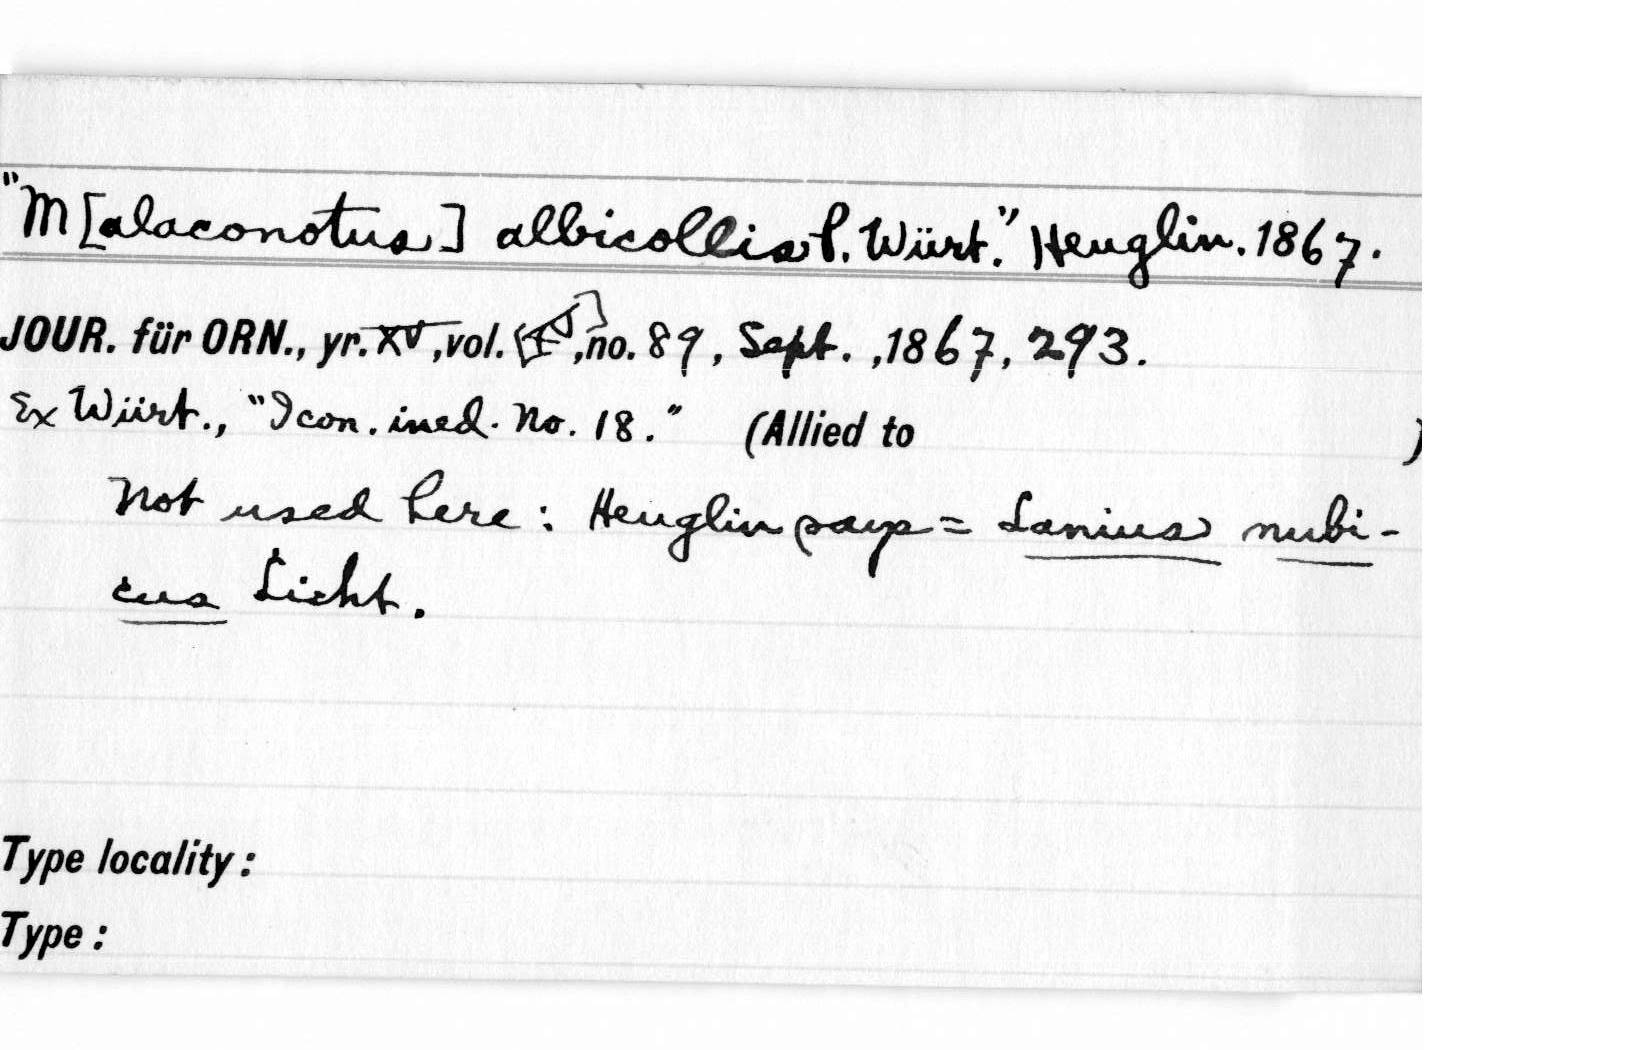 "M[alaconotus] albicollis P. Würt." Heuglin. 1867.
JOUR. für ORN., yr. XV, vol. , no. 89, Sept., 1867, 293.
Ex Würt., "Icon. ined. No. 18." (Allied to )
Not used here: Heuglin says = Lanius nubi-
cus Licht.
Type locality:
Type: